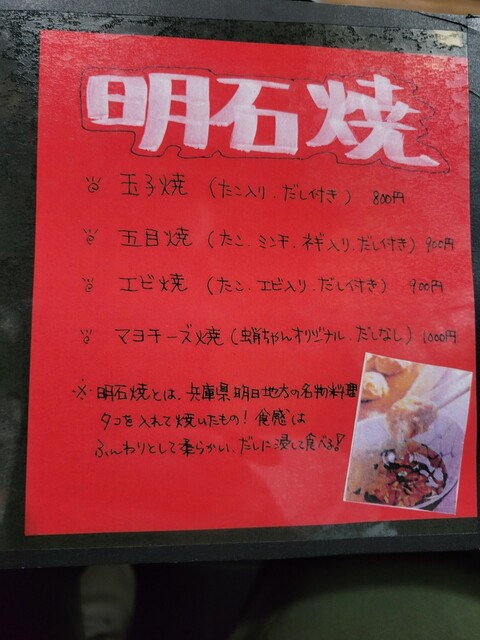 明石焼
玉子焼 (たこ入り、だし付き) 800円
五目焼 (たこ、ミンチ、ネギ入り、だし付き) 900円
エビ焼 (たこ、エビ入り、だし付き) 900円
マヨチーズ焼 (蛸ちゃんオリジナル、だしなし) 1000円
※ 明石焼とは、兵庫県明日地方の名物料理
タコを入れて焼いたもの! 食感は
ふんわりとして柔らかい、だしに浸して食べる!